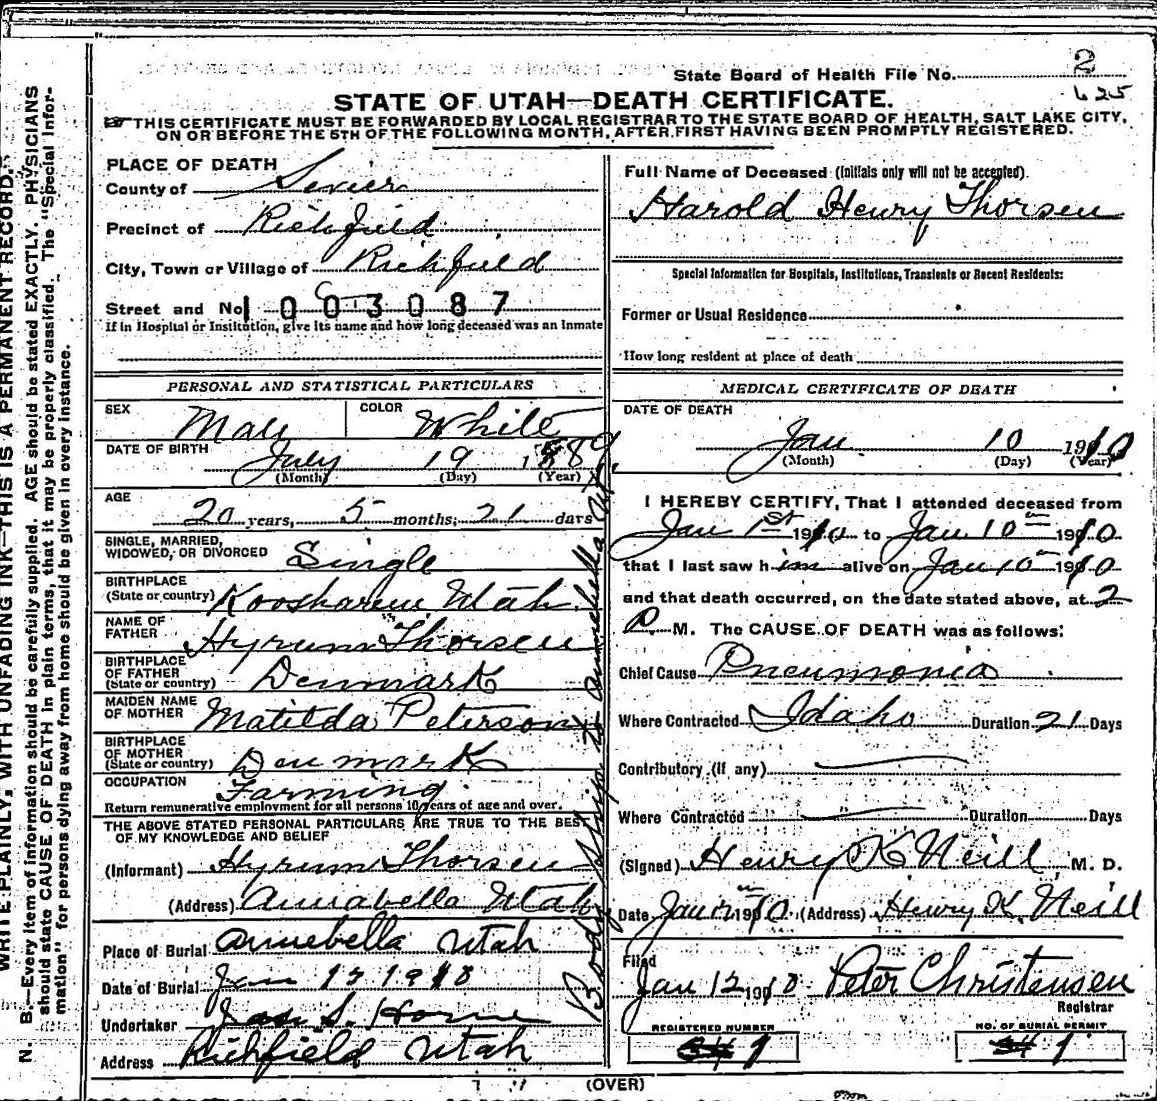 State Board of Health File No. 2
625
STATE OF UTAH—DEATH CERTIFICATE.
THIS CERTIFICATE MUST BE FORWARDED BY LOCAL REGISTRAR TO THE STATE BOARD OF HEALTH, SALT LAKE CITY,
ON OR BEFORE THE 5TH OF THE FOLLOWING MONTH, AFTER FIRST HAVING BEEN PROMPTLY REGISTERED.
PLACE OF DEATH
County of Sevier
Precinct of Richfield
City, Town or Village of Richfield
Street and No. 1003087
If in Hospital or Institution, give its name and how long deceased was an Inmate
PERSONAL AND STATISTICAL PARTICULARS
SEX Male COLOR White
DATE OF BIRTH July 19 1889
(Month) (Day) (Year)
AGE
20 years, 5 months, 21 days
SINGLE, MARRIED,
WIDOWED, OR DIVORCED Single
BIRTHPLACE
(State or country) Koosharem Utah
NAME OF
FATHER Hyrum Thorsen
BIRTHPLACE
OF FATHER
(State or country) Denmark
MAIDEN NAME
OF MOTHER Matilda Peterson
BIRTHPLACE
OF MOTHER
(State or country) Denmark
OCCUPATION Farming
Return remunerative employment for all persons 10 years of age and over.
THE ABOVE STATED PERSONAL PARTICULARS ARE TRUE TO THE BEST
OF MY KNOWLEDGE AND BELIEF
(Informant) Hyrum Thorsen
(Address) Annabella Utah
Place of Burial Annebella Utah
Date of Burial Jan 1910
Undertaker Jas S. Horne
Address Richfield Utah
Body Ship to Annebella Ut.
Full Name of Deceased (Initials only will not be accepted).
Harold Henry Thorsen
Special Information for Hospitals, Institutions, Transients or Recent Residents:
Former or Usual Residence
How long resident at place of death
MEDICAL CERTIFICATE OF DEATH
DATE OF DEATH
Jan. 10 1910
(Month) (Day) (Year)
I HEREBY CERTIFY, That I attended deceased from
Jan 1st 1910 to Jan. 10th 1910.
that I last saw him alive on Jan 10th 1910
and that death occurred, on the date stated above, at 2
P. M. The CAUSE OF DEATH was as follows:
Chief Cause Pneumonia
Where Contracted Idaho Duration 21 Days
Contributory (if any)
Where Contracted Duration Days
(Signed) Henry K Neill M. D.
Date Jan 1910. (Address) Henry K. Neill
Filed
Jan 12 1910 Peter Christensen
Registrar
REGISTERED NUMBER
1
NO. OF BURIAL PERMIT
1
(OVER)
N. B.—Every item of information should be carefully supplied. AGE should be stated EXACTLY. PHYSICIANS
should state CAUSE OF DEATH in plain terms, that it may be properly classified. The "Special Infor-
mation" for persons dying away from home should be given in every instance.
WRITE PLAINLY, WITH UNFADING INK—THIS IS A PERMANENT RECORD.